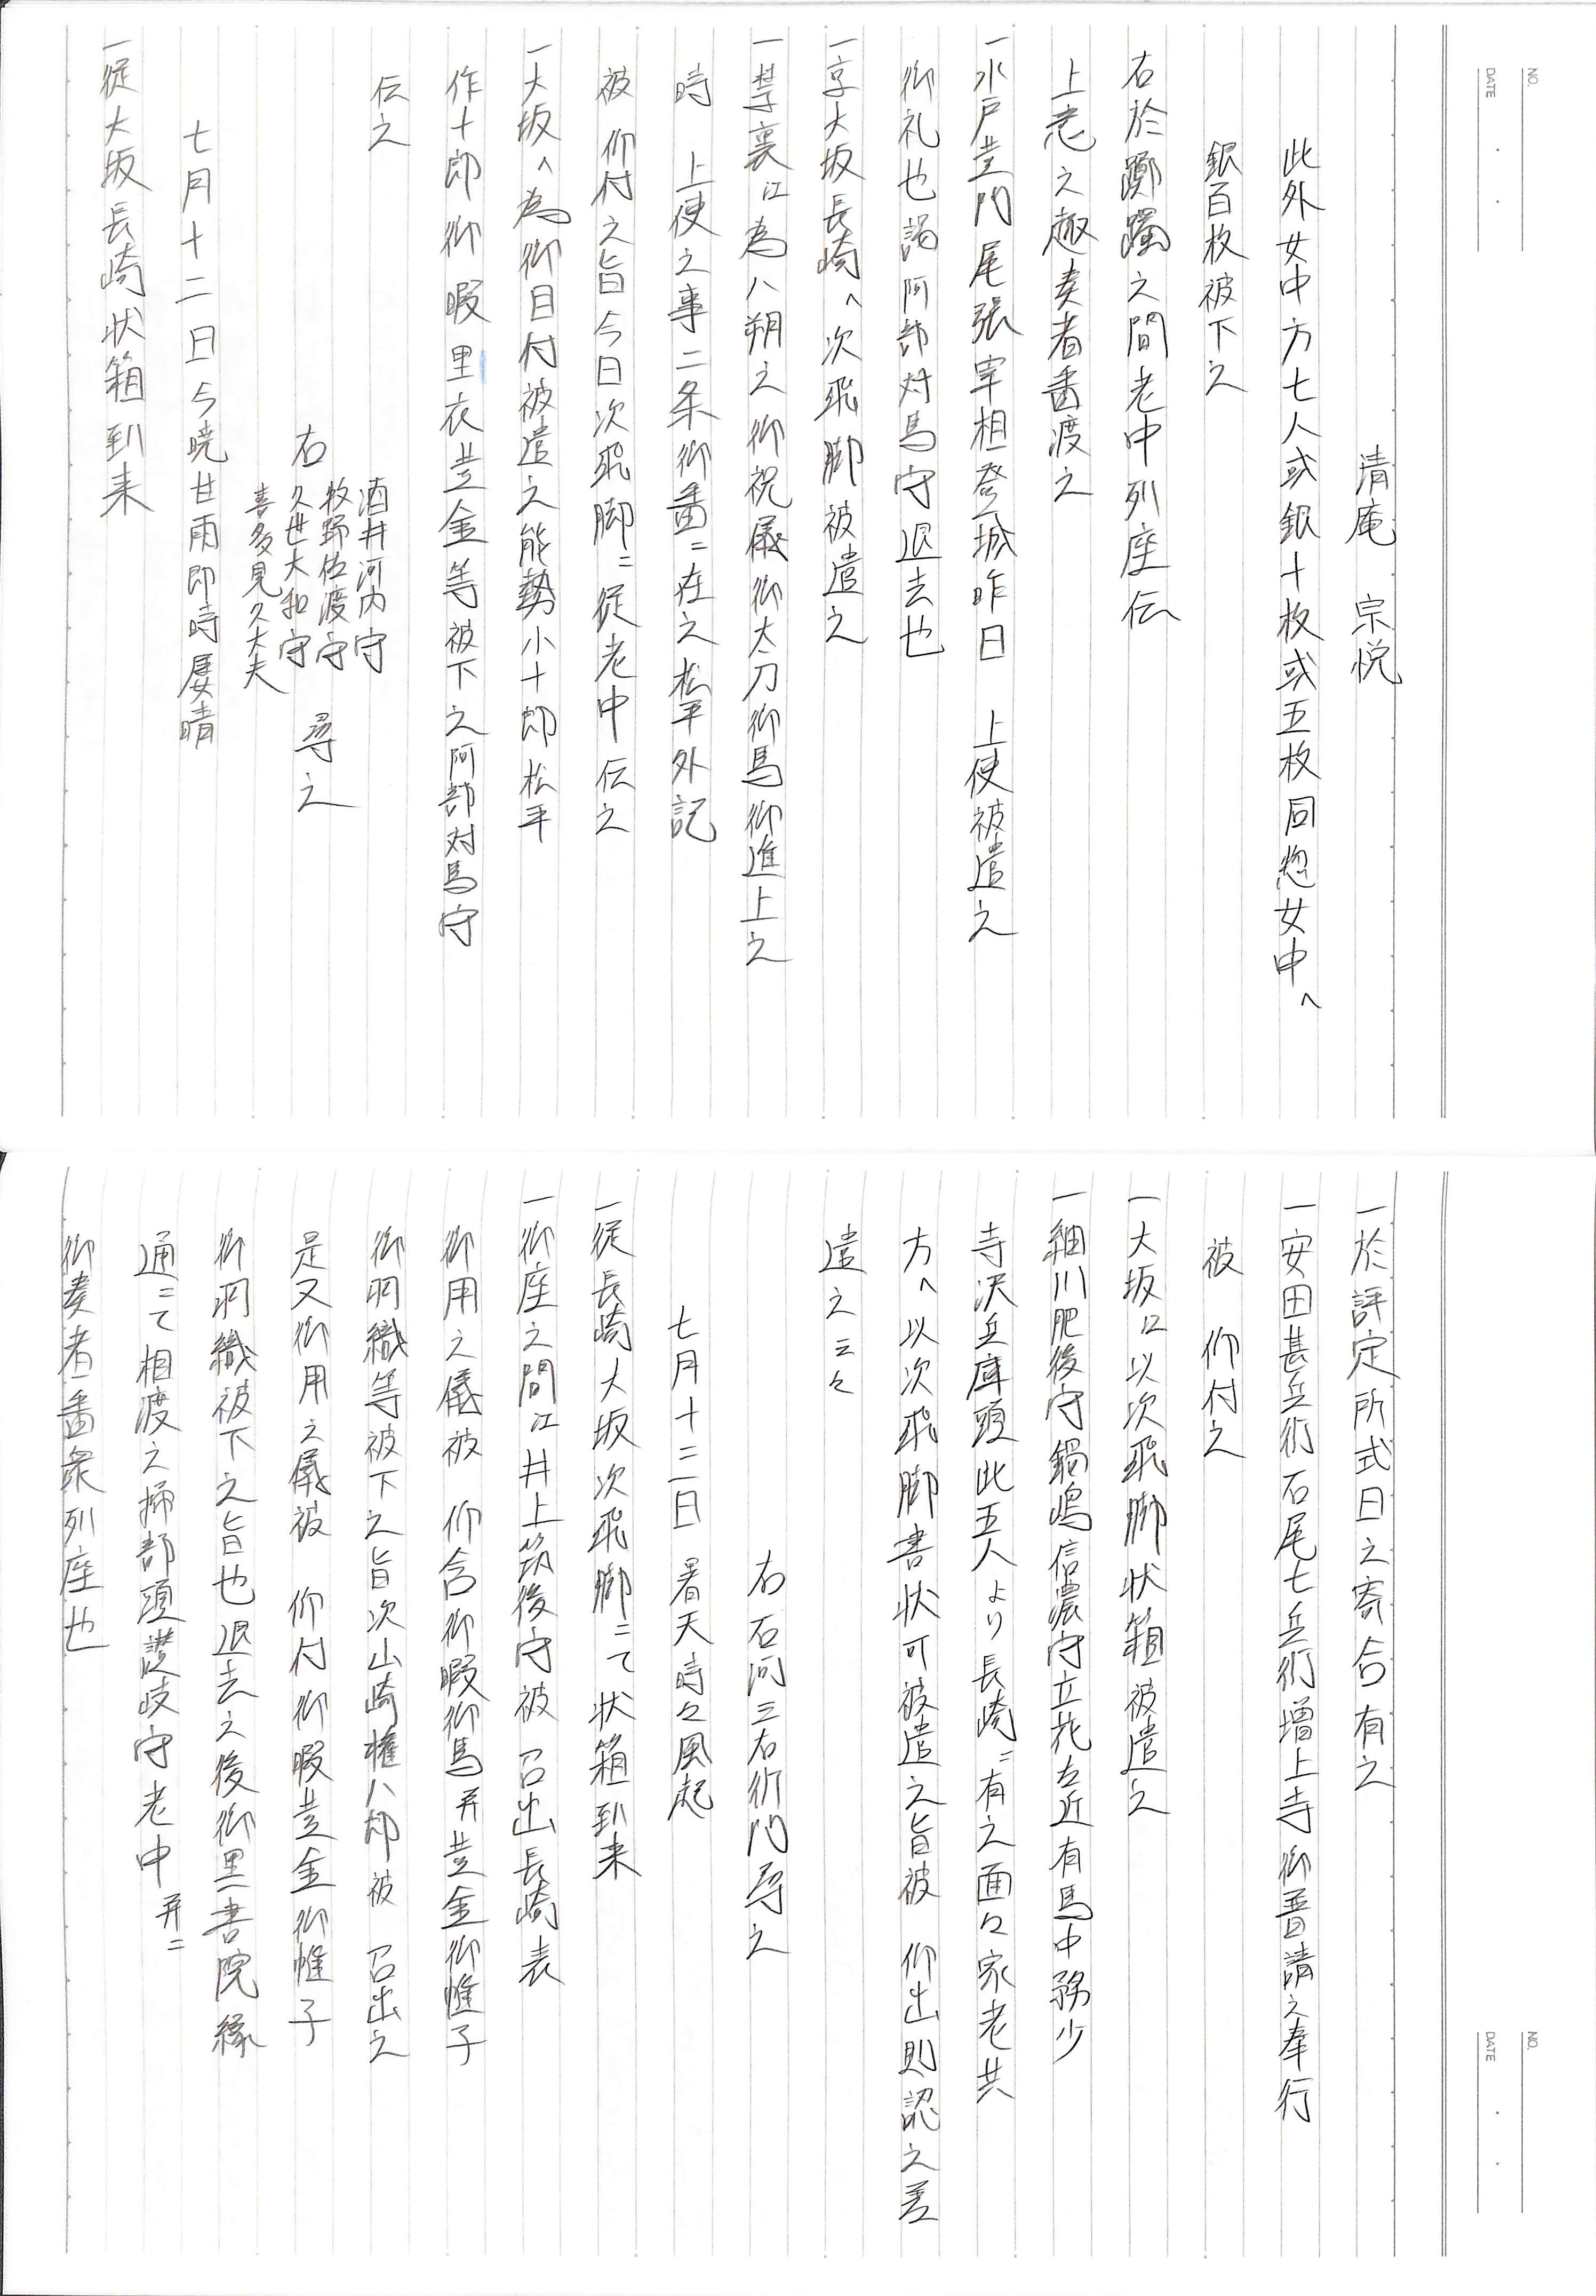 清庵　宗悦
此外女中方七人或銀十枚或五枚同惣女中へ
銀百枚被下之
右於躑躅之間老中列座伝
上意之趣奏者番渡之
一水戸黄門尾張宰相登城昨日　上使被遣之
御礼也謁阿部対馬守退去也
一京大坂長崎へ次飛脚被遣之
一禁裏江為八朔之御祝儀御太刀御馬御進上之
時　上使之事二条御番ニ在之松平外記
被　仰付之旨今日次飛脚ニ従老中伝之
一大坂へ為御目付被遣之能勢小十郎松平
作十郎御暇黒衣黄金等被下之阿部対馬守
伝之
酒井河内守
牧野佐渡守
右　久世大和守　尋之
喜多見久大夫
七月十二日今暁甘雨即時属晴
一従大坂長崎状箱到来
一於評定所式日之寄合有之
一安田甚兵衛石尾七兵衛増上寺御普請之奉行
被　仰付之
一大坂口以次飛脚状箱被遣之
一細川肥後守鍋嶋信濃守立花左近有馬中務少
寺沢兵庫頭此五人より長崎ニ有之面々家老共
方へ以次飛脚書状可被遣之旨被　仰出則認之差
遣之云々
右石河三右衛門尋之
七月十三日　暑天時々風起
一従長崎大坂次飛脚ニて状箱到来
一御座之間江井上筑後守被　召出長崎表
御用之儀被　仰含御暇御馬并黄金御帷子
御羽織等被下之旨次山崎権八郎被　召出之
是又御用之儀被　仰付御暇黄金御帷子
御羽織被下之旨也退去之後御黒書院縁
通ニて相渡之掃部頭讃岐守老中并ニ
御奏者番衆列座也
NO.
DATE
NO.
DATE